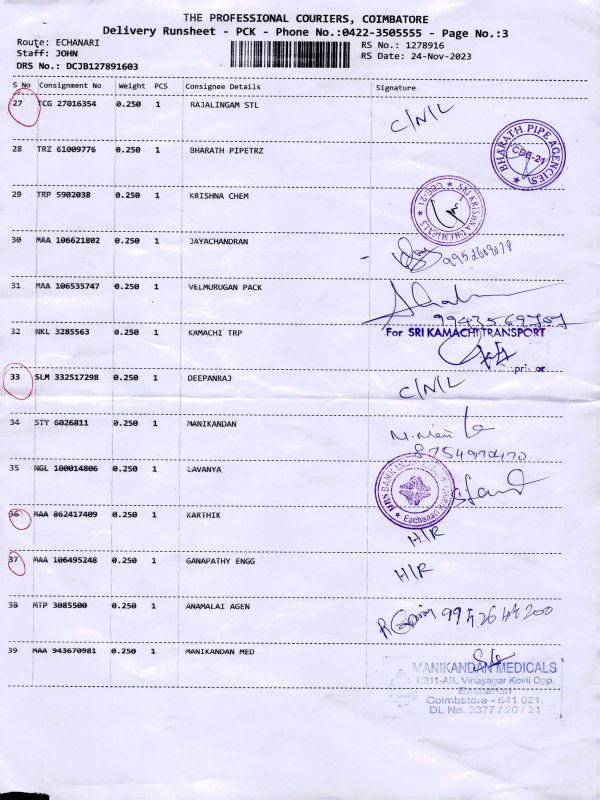 THE PROFESSIONAL COURIERS, COIMBATORE
Delivery Runsheet - PCK - Phone No.:0422-3505555 - Page No.:3
Route: ECHANARI RS No.: 1278916
Staff: JOHN RS Date: 24-Nov-2023
DRS No.: DCJB127891603
S No Consignment No Weight PCS Consignee Details Signature
27 TCG 27016354 0.250 1 RAJALINGAM STL C/N/L
28 TRZ 61009776 0.250 1 BHARATH PIPETRZ
BHARATH PIPE AGENCIES CBE-21
29 TRP 5902038 0.250 1 KRISHNA CHEM
SRI KRISHNA CHEMICALS CBE-21
30 MAA 106621802 0.250 1 JAYACHANDRAN
31 MAA 106535747 0.250 1 VELMURUGAN PACK
32 NKL 3285563 0.250 1 KAMACHI TRP
For SRI KAMACHI TRANSPORT
33 SLM 332517298 0.250 1 DEEPANRAJ C/N/L
34 STY 6026811 0.250 1 MANIKANDAN
35 NGL 100014806 0.250 1 LAVANYA
36 MAA 862417409 0.250 1 KARTHIK H/R
37 MAA 106495248 0.250 1 GANAPATHY ENGG H/R
38 MTP 3085500 0.250 1 ANAMALAI AGEN
39 MAA 943670981 0.250 1 MANIKANDAN MED
MANIKANDAN MEDICALS
1/211-AB, Vinayagar Kovil Opp.
Eachanari
Coimbatore - 641 021.
DL No. 3377 / 20 / 21